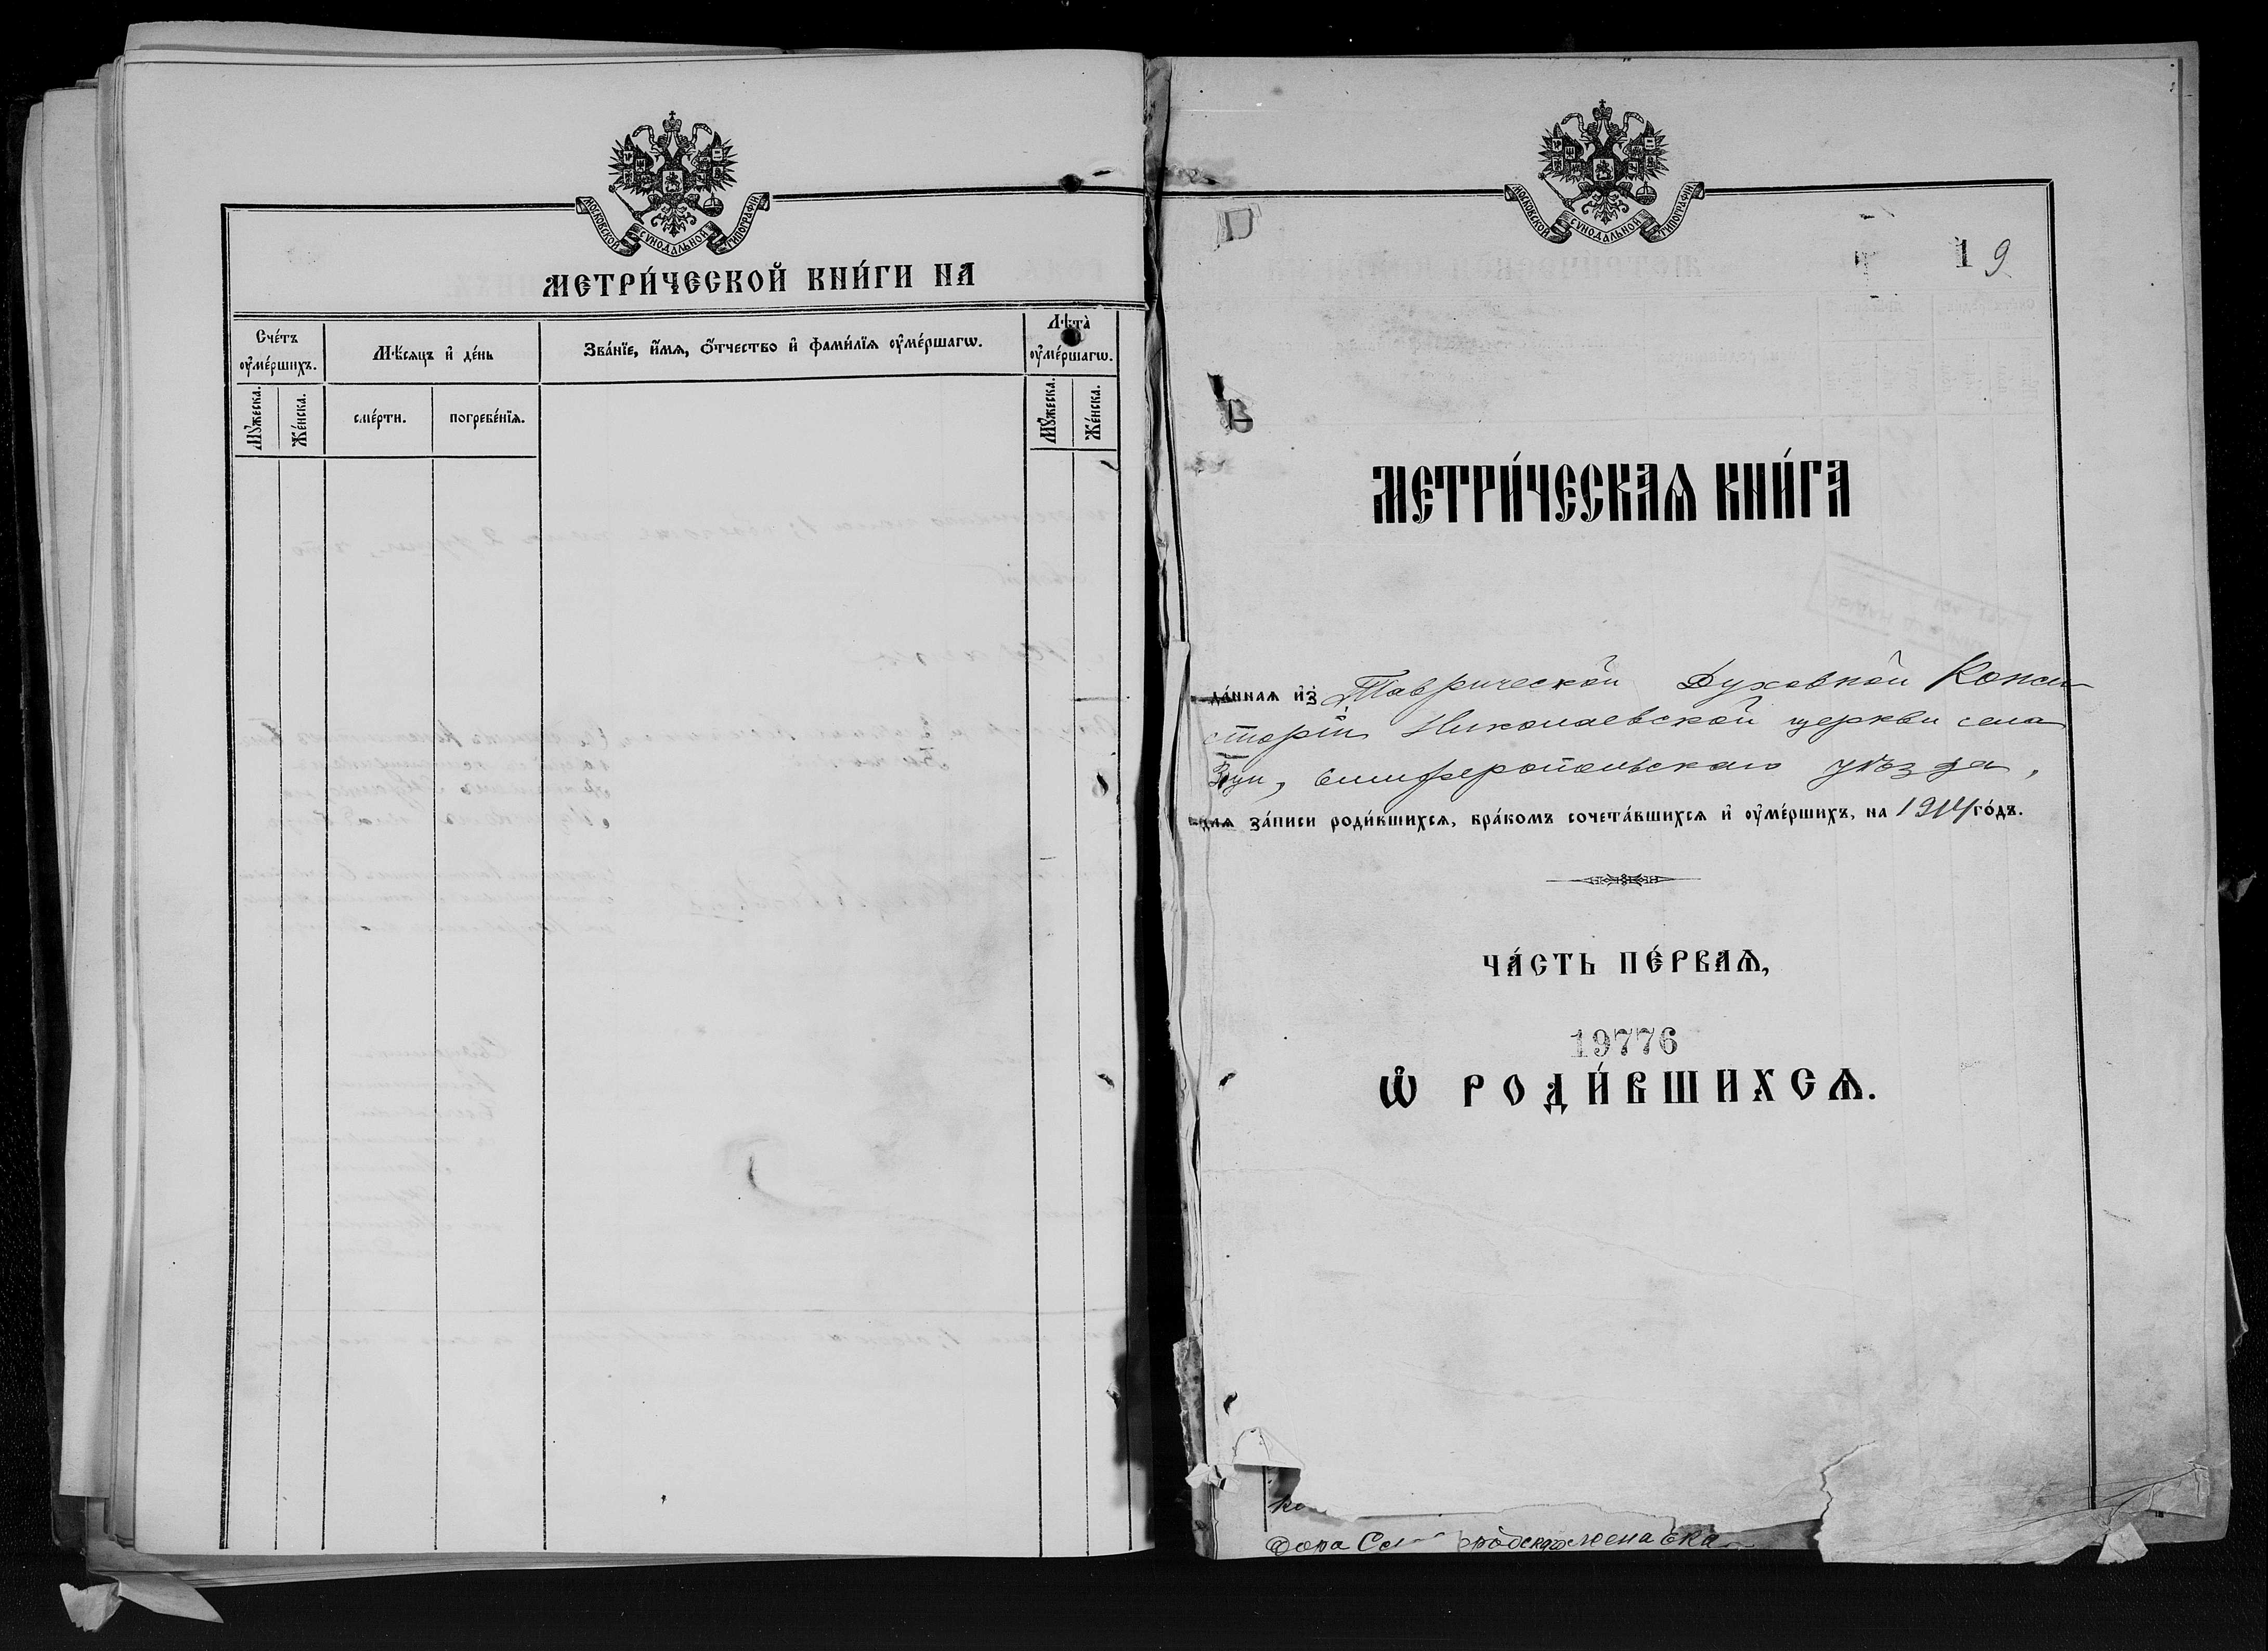 МОСКОВСКОЙ СУНОДАЛЬНОЙ ТИПОГРАФІИ
МЕТРИ́ЧЕСКОЙ КНИ́ГИ НА
Сче́тъ оу҆ме́ршихъ.
Мѣ́сяцъ и҆ де́нь
Зва́нїе, и҆́мѧ, ѻ҆́тчество и҆ фами́лїѧ оу҆ме́ршагѡ.
Лѣта̀ оу҆ме́ршагѡ.
Мꙋ́жеска.
Же́нска.
сме́рти.
погребе́нїѧ.
Мꙋ́жеска.
Же́нска.
МОСКОВСКОЙ СУНОДАЛЬНОЙ ТИПОГРАФІИ
19
МЕТРИ́ЧЕСКАѦ КНИ́ГА
да́ннаѧ и҆з̾ Таврической Духовной Конси
сторіи Николаевской церкви села
Зуи, Симферопольскаго уѣзда,
длѧ за́писи роди́вшихсѧ, бра́комъ сочета́вшихсѧ и҆ оу҆ме́ршихъ, на 1914 го́дъ.
ЧА́СТЬ ПЕ́РВАѦ,
19776
Ѡ҆ РОДИ́ВШИХСѦ.
жена Ека